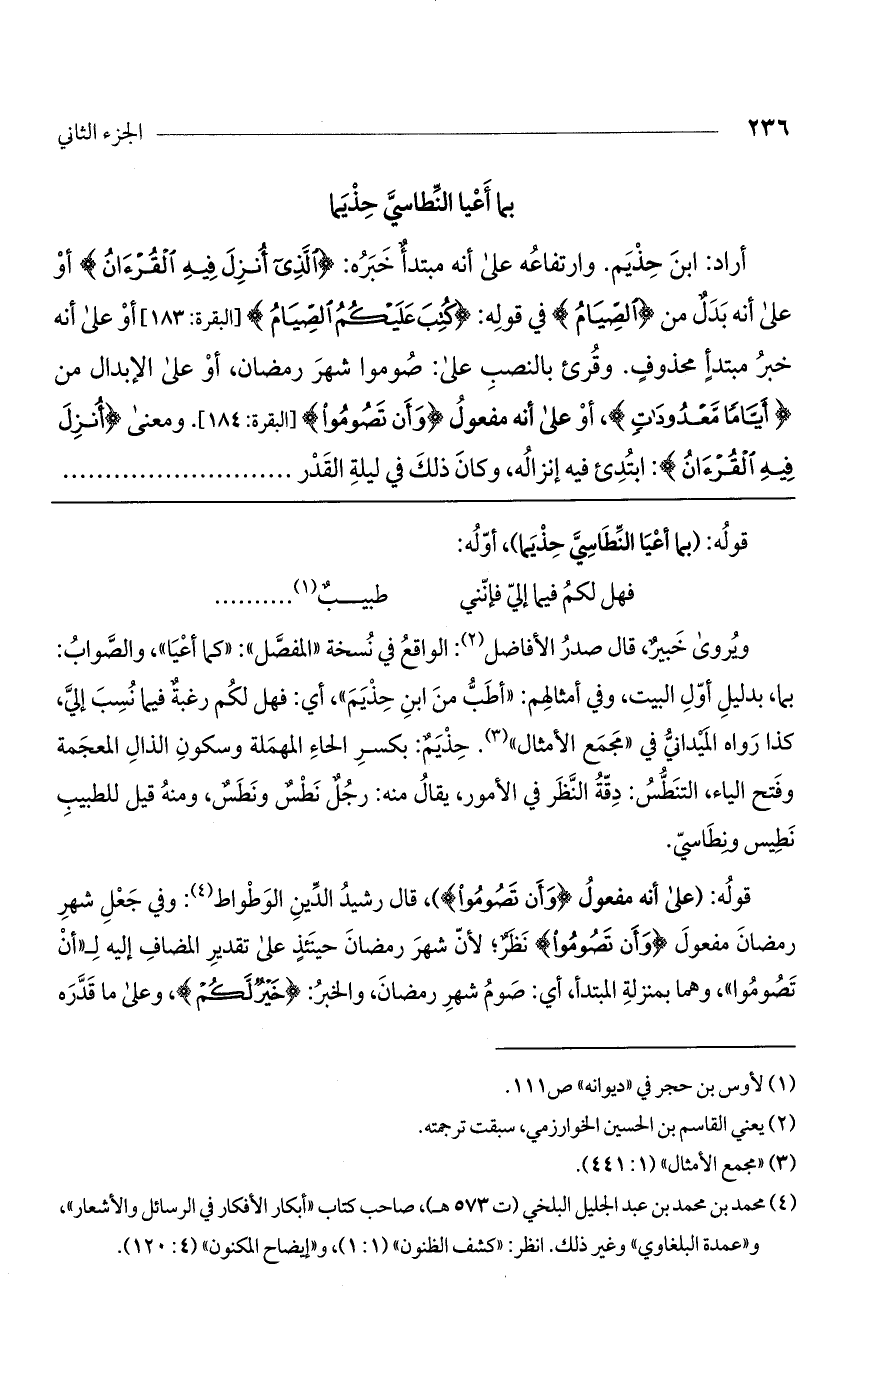 ٢٣٦ الجزء الثاني
بما أَعْيا النِّطاسيَّ حِذْيَما
أراد: ابنَ حِذْيَم. وارتفاعُه علىٰ أنه مبتدأٌ خَبَرُه: ﴿ٱلَّذِىٓ أُنزِلَ فِيهِ ٱلْقُرْءَانُ﴾ أوْ
علىٰ أنه بَدَلٌ من ﴿ٱلصِّيَامُ﴾ في قولِه: ﴿كُتِبَ عَلَيْكُمُ ٱلصِّيَامُ﴾ [البقرة: ١٨٣] أوْ علىٰ أنه
خبرُ مبتدأٍ محذوفٍ. وقُرئ بالنصبِ علىٰ: صُوموا شهرَ رمضان، أوْ علىٰ الإبدال من
﴿أَيَّامًا مَّعْدُودَٰتٍ﴾، أوْ علىٰ أنه مفعولُ ﴿وَأَن تَصُومُوا۟﴾ [البقرة: ١٨٤]. ومعنىٰ ﴿أُنزِلَ
فِيهِ ٱلْقُرْءَانُ﴾: ابتُدِئ فيه إنزالُه، وكانَ ذلكَ في ليلةِ القَدْر ...........................
قولُه: (بما أعْيَا النِّطَاسِيَّ حِذْيَما)، أوّلُه:
فهل لكمُ فيما إليّ فإنّني طبيـــبٌ(١)..........
ويُروىٰ خَبيرٌ، قال صدرُ الأفاضل(٢): الواقعُ في نُسخة «المفصَّل»: «كما أعْيَا»، والصَّوابُ:
بما، بدليلِ أوّلِ البيت، وفي أمثالِهم: «أطَبُّ منَ ابنِ حِذْيَمَ»، أي: فهل لكُم رغبةٌ فيما نُسِبَ إليَّ،
كذا رَواه المَيْدانيُّ في «مَجمَع الأمثال»(٣). حِذْيَمٌ: بكسرِ الحاءِ المهمَلة وسكونِ الذال المعجَمة
وفَتح الياء، التنَطُّسُ: دِقّةُ النَّظَر في الأمور، يقالُ منه: رجُلٌ نَطْسٌ ونَطَسٌ، ومنهُ قيل للطبيبِ
نَطِيس ونِطَاسيّ.
قولُه: (علىٰ أنه مفعولُ ﴿وَأَن تَصُومُوا۟﴾)، قال رشيدُ الدِّينِ الوَطْواط(٤): وفي جَعْلِ شهرِ
رمضانَ مفعولَ ﴿وَأَن تَصُومُوا۟﴾ نَظَرٌ؛ لأنّ شهرَ رمضانَ حينَئذٍ علىٰ تقديرِ المضاف إليه لِـ«أنْ
تَصُومُوا»، وهما بمنزلةِ المبتدأ، أي: صَومُ شهرِ رمضانَ، والخبرُ: ﴿خَيْرٌ لَّكُمْ﴾، وعلىٰ ما قَدَّرَه
(١) لأوس بن حجر في «ديوانه» ص١١١.
(٢) يعني القاسم بن الحسين الخوارزمي، سبقت ترجمته.
(٣) «مجمع الأمثال» (١: ٤٤١).
(٤) محمد بن محمد بن عبد الجليل البلخي (ت ٥٧٣ هـ)، صاحب كتاب «أبكار الأفكار في الرسائل والأشعار»،
و«عمدة البلغاوي» وغير ذلك. انظر: «كشف الظنون» (١: ١)، و«إيضاح المكنون» (٤: ١٢٠).